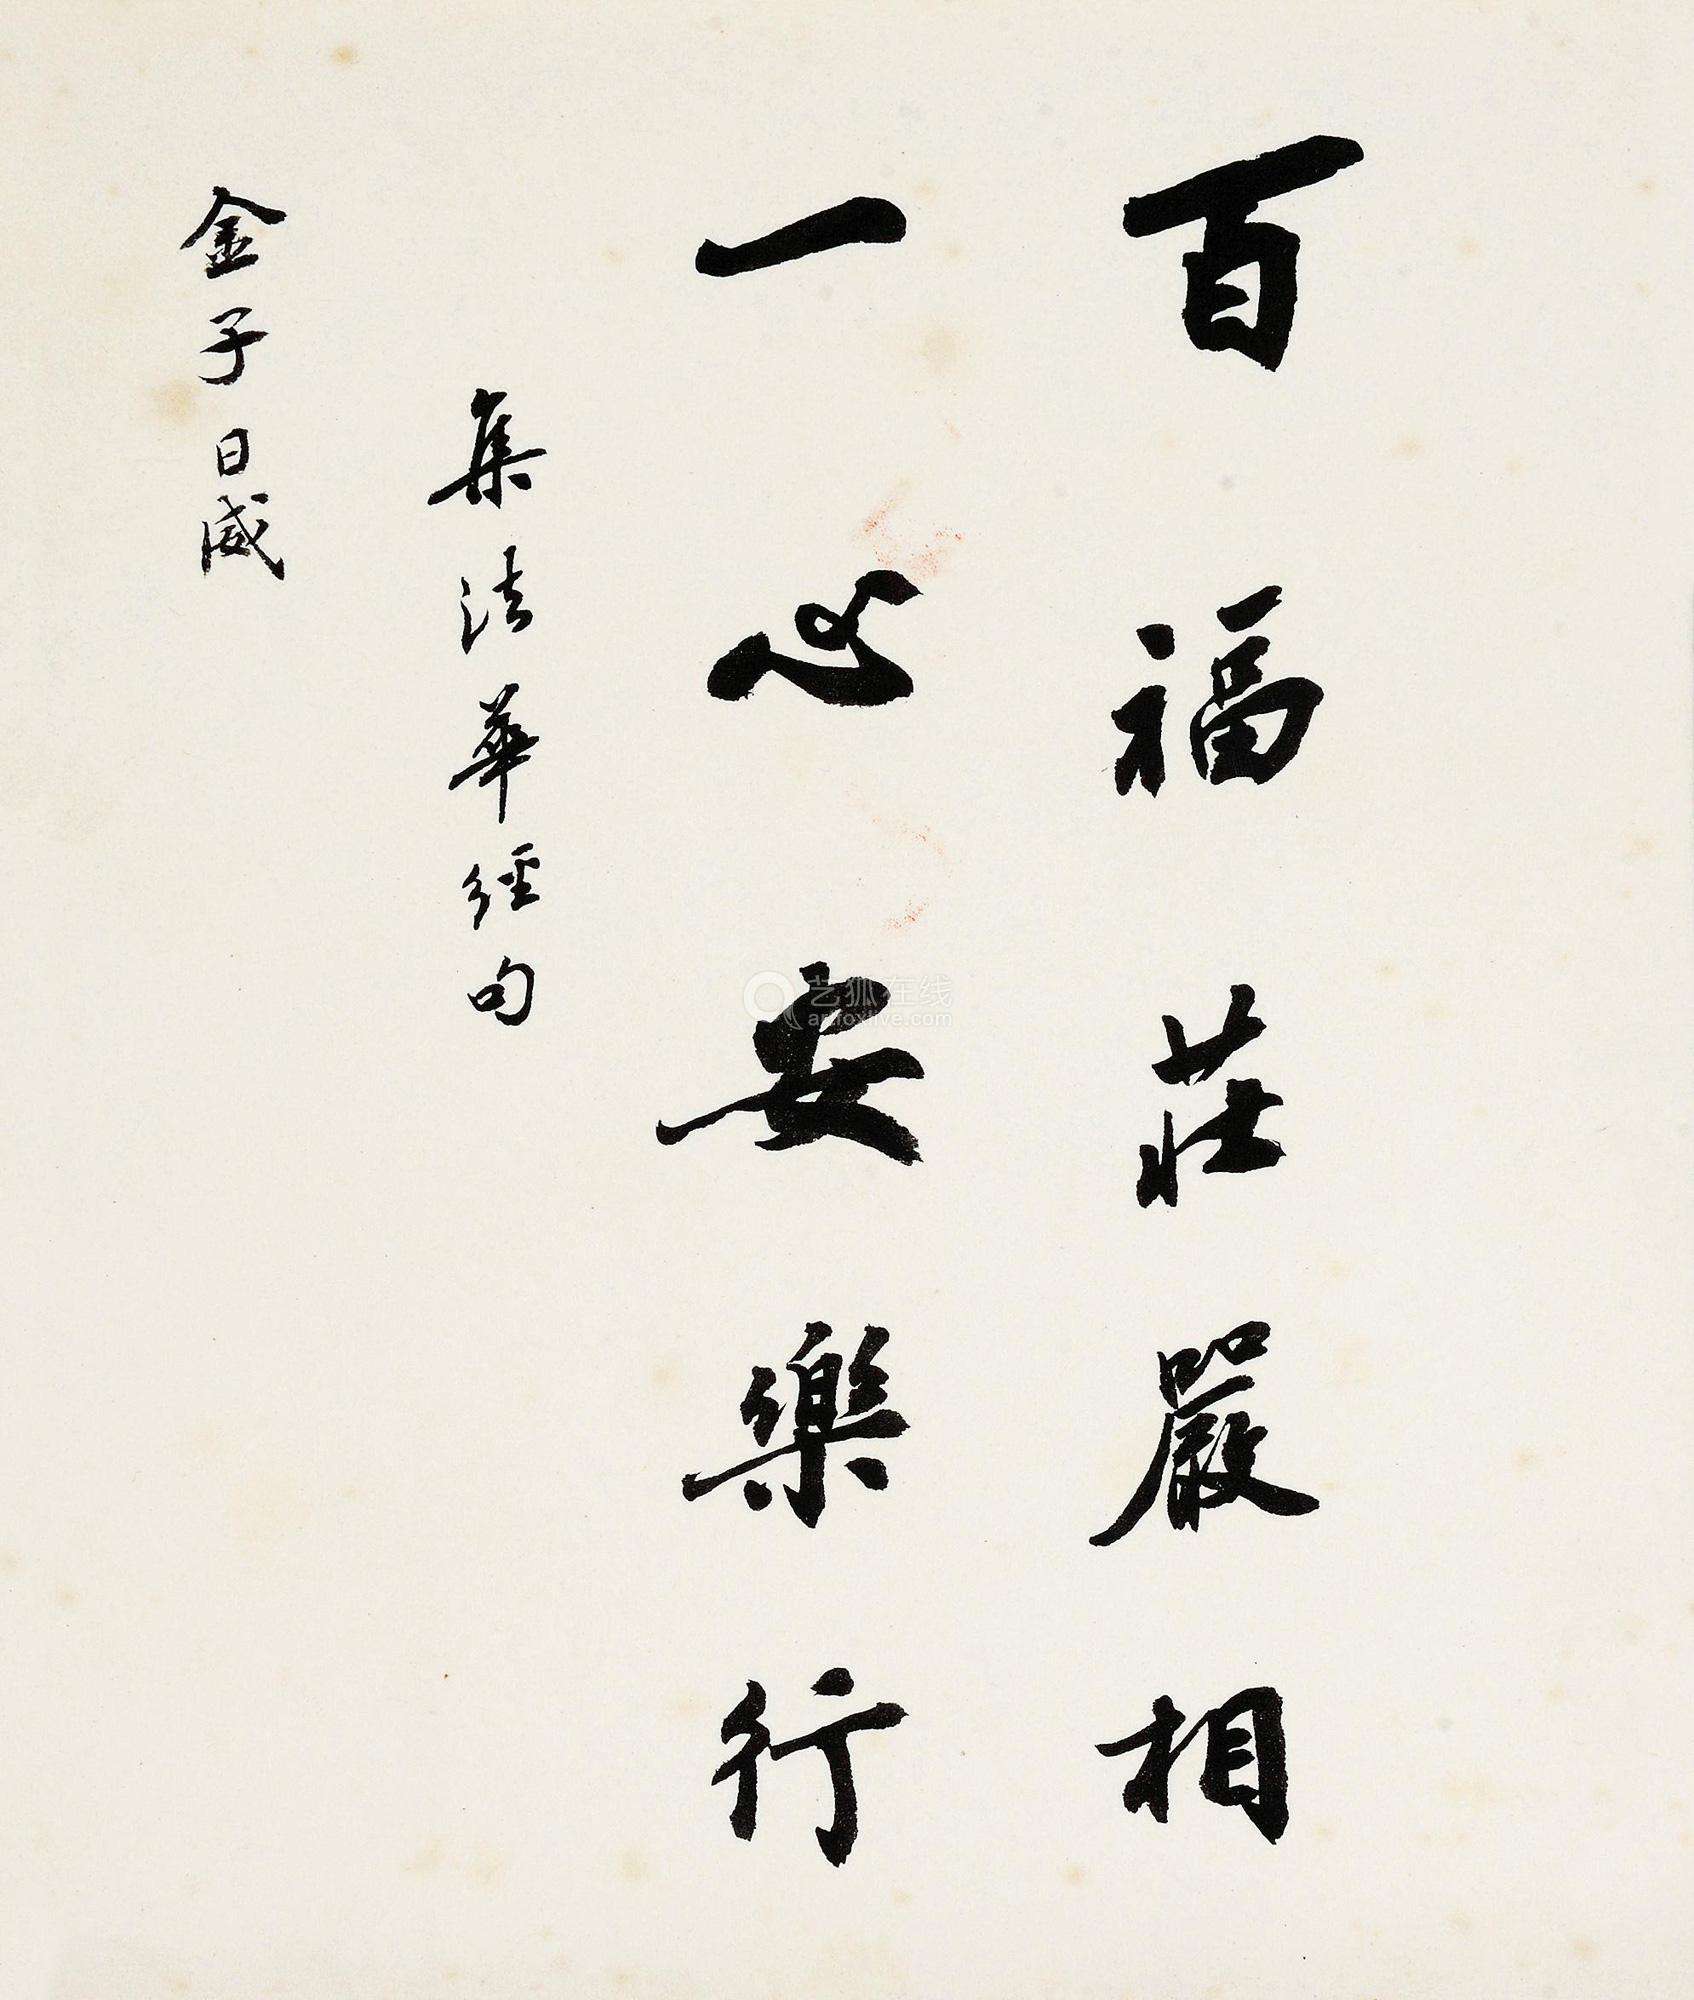 百福莊嚴相
一心安樂行
集法華經句
金子日威
艺狐在线
artfoxlive.com